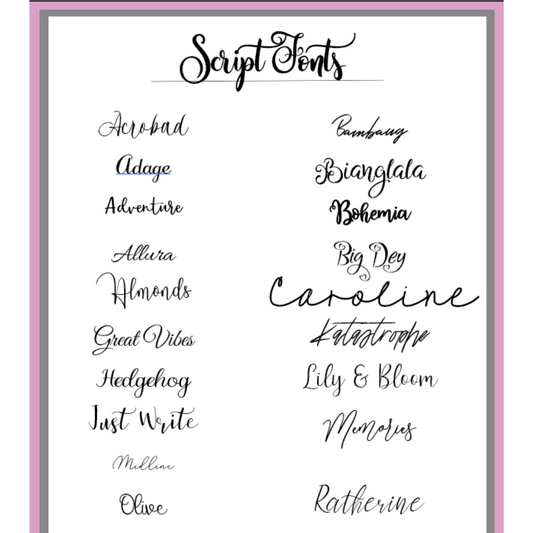 Script Fonts
Acrobad
Adage
Adventure
Allura
Almonds
Great Vibes
Hedgehog
Just Write
Midline
Olive
Bambang
Bianglala
Bohemia
Big Dey
Caroline
Katastrophe
Lily & Bloom
Memories
Ratherine